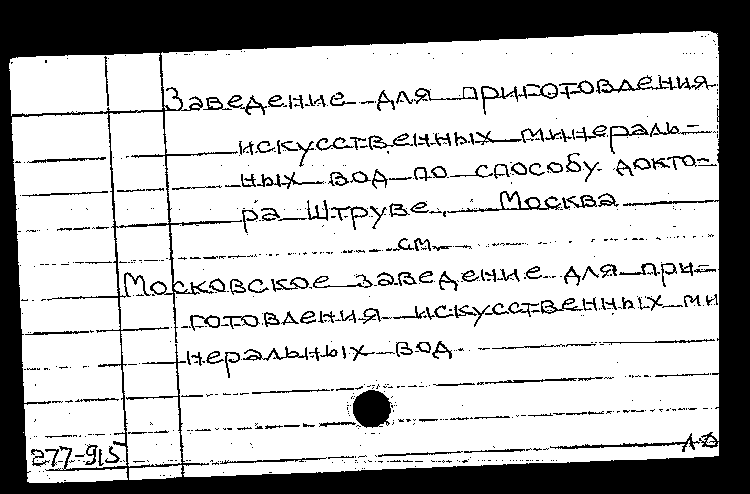 Заведение для приготовления
искусственных минераль-
ных вод по способу докто-
ра Штруве, Москва
см.
Московское заведение для при-
готовления искусственных ми
неральных вод.
277-915